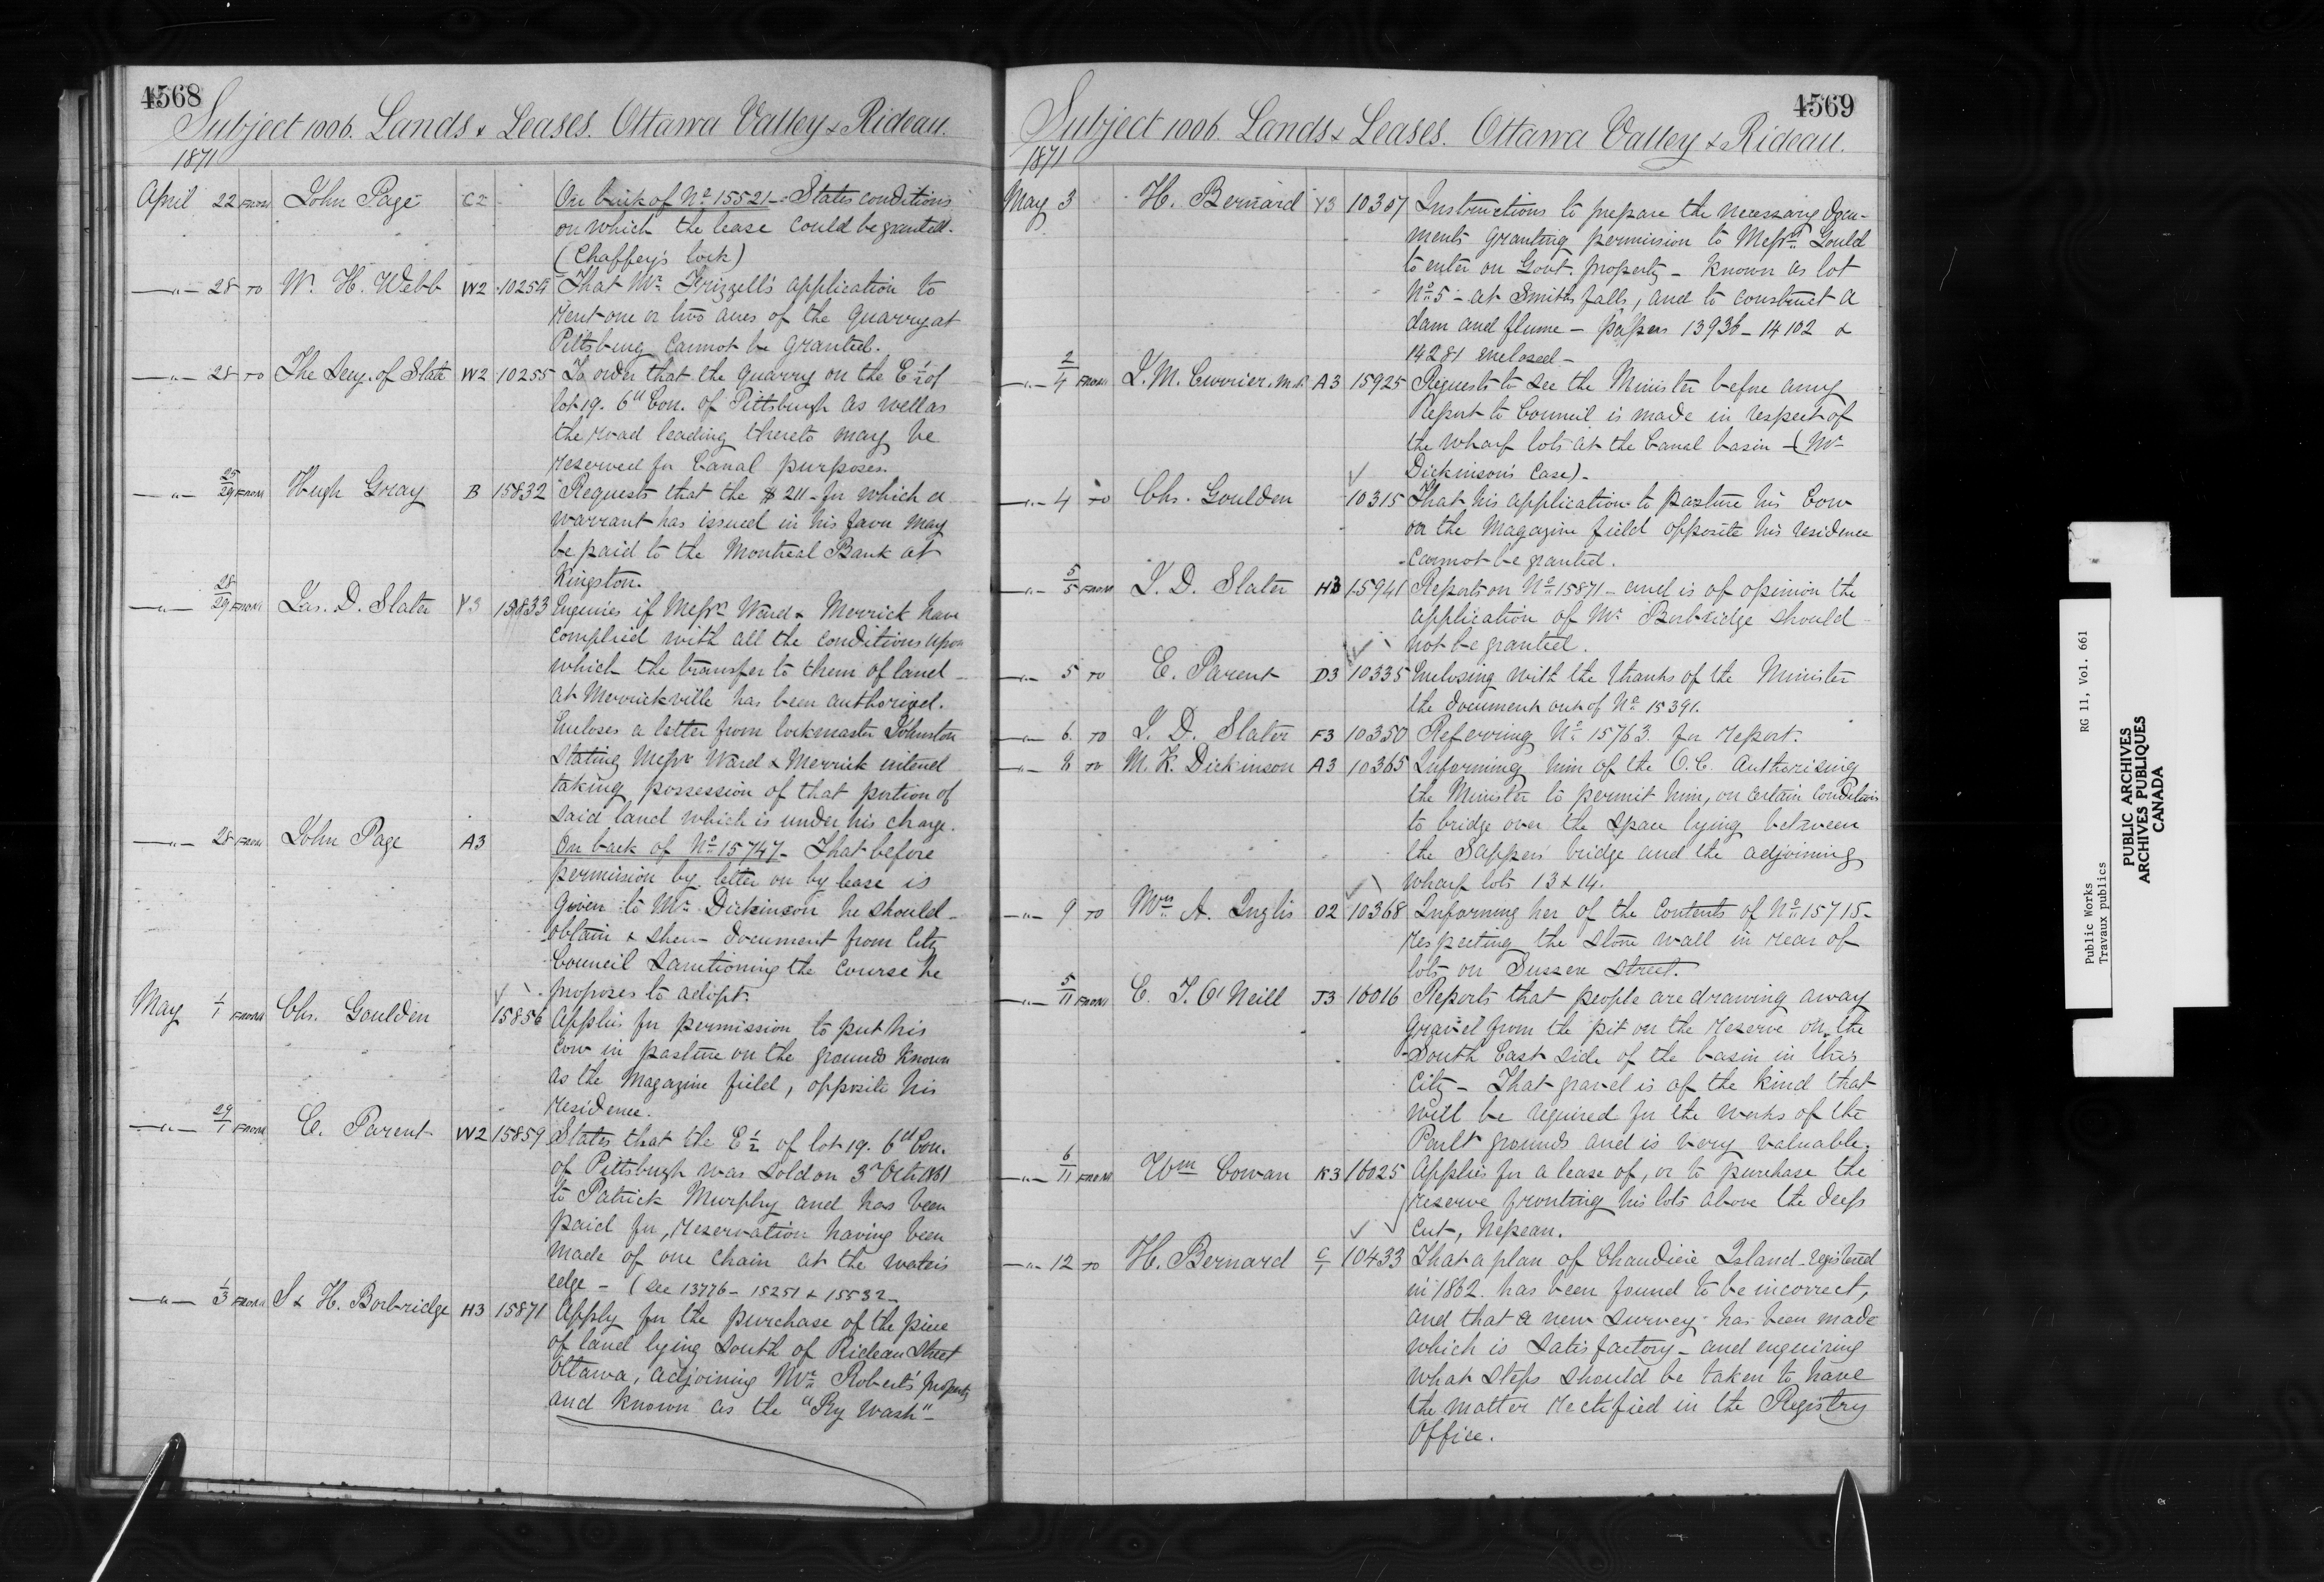 4568
Subject 1006. Lands & Leases. Ottawa Valley & Rideau.
1871
April 22 FROM John Page C2 On back of No 15521 - States conditions
on which the lease could be granted.
(Chaffey's lock)
—"— 28 TO W. H. Webb W2 10254 That Mr Frizzell's application to
rent one or two acres of the quarry at
Pittsburg cannot be granted.
—"— 28 TO The Secy. of State W2 10255 To order that the quarry on the E ½ of
lot 19. 6th Con. of Pittsburgh as well as
the road leading thereto may be
reserved for Canal purposes.
—"— 25/29 FROM Hugh Gray B 15832 Requests that the $211 - for which a
warrant has issued in his favor may
be paid to the Montreal Bank at
Kingston.
—"— 28/29 FROM Jas. D. Slater Y3 15833 Inquires if Messrs Ward & Merrick have
complied with all the conditions upon
which the transfer to them of land
at Merrickville has been authorized.
Encloses a letter from lockmaster Johnston
stating Messrs Ward & Merrick intend
taking possession of that portion of
said land which is under his charge.
—"— 28 FROM John Page A3 On back of No 15747 - That before
permission by letter or by lease is
given to Mr Dickinson he should
obtain & shew document from City
Council sanctioning the course he
proposes to adopt.
May 1/1 FROM Chs. Goulden 15856 Applies for permission to put his
cow in pasture on the grounds known
as the Magazine field, opposite his
residence.
—"— 29/1 FROM E. Parent W2 15859 States that the E ½ of lot 19. 6th Con.
of Pittsburgh was sold on 3rd Oct.
to Patrick Murphy and has been
paid for, reservation having been
made of one chain at the water's
edge - (see 13776 - 15251 & 15532 -
—"— 1/3 FROM S & H. Borbridge H3 15871 Apply for the purchase of the piece
of land lying South of Rideau Street
Ottawa, adjoining Mr Robert's property
and known as the "By Wash" -
4569
Subject 1006. Lands & Leases. Ottawa Valley & Rideau.
1871
May 3 H. Bernard Y3 10307 Instructions to prepare the necessary docu-
ments granting permission to Messrs Gould
to enter on Govt. property - known as lot
No 5 - at Smiths falls, and to construct a
dam and flume - papers 13936 - 14102 &
14281 enclosed -
—"— 2/4 FROM J. M. Currier. M.P. A3 15925 Requests to see the Minister before any
Report to Council is made in respect of
the wharf lots at the Canal basin - (Mr
Dickinson's Case) -
—"— 4 TO Chs. Goulden 10315 That his application to pasture his Cow
on the Magazine field opposite his residence
cannot be granted.
—"— 5/5 FROM J. D. Slater H3 15941 Reports on No 15871 - and is of opinion the
application of Mr Borbridge should
not be granted.
—"— 5 TO E. Parent D3 10335 Enclosing with the thanks of the Minister
the document out of No 15391.
—"— 6 TO J. D. Slater F3 10350 Referring No 15763. for report.
—"— 8 TO M. K. Dickinson A3 10365 Informing him of the O.C. authorising
the Minister to permit him, on certain conditions
to bridge over the space lying between
the Sappers' bridge and the adjoining
wharf lots 13 & 14.
—"— 9 TO Mrs A. Inglis O2 10368 Informing her of the Contents of No 15715 -
respecting the stone wall in rear of
lots on Sussex street.
—"— 5/11 FROM C. J. O'Neill J3 16016 Reports that people are drawing away
gravel from the pit on the reserve on the
South East side of the basin in this
City - That gravel is of the kind that
will be required for the works of the
Parlt grounds and is very valuable.
—"— 6/11 FROM Wm Cowan K3 16025 Applies for a lease of, or to purchase the
reserve fronting his lots above the deep
cut, Nepean.
—"— 12 TO H. Bernard C/1 10433 That a plan of Chaudiere Island registered
in 1862. has been found to be incorrect,
and that a new survey has been made
which is satisfactory - and enquiring
what steps should be taken to have
the matter rectified in the Registry
Office.
Public Works RG 11, Vol. 661
Travaux publics
PUBLIC ARCHIVES
ARCHIVES PUBLIQUES
CANADA